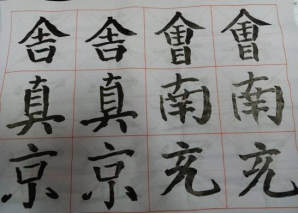 舍舍會會
真真南南
京京充充